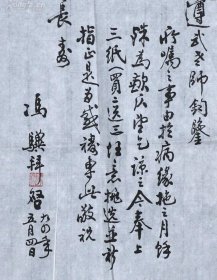 遵式老師鈞鑒
所嘱之事由於病緣拖之月餘
殊為歉仄望乞諒之今奉上
三紙(買二送三)任意挑選並祈
指正是为感禱專此敬祝
長壽
馮驥拜啓
九四年
五月四日